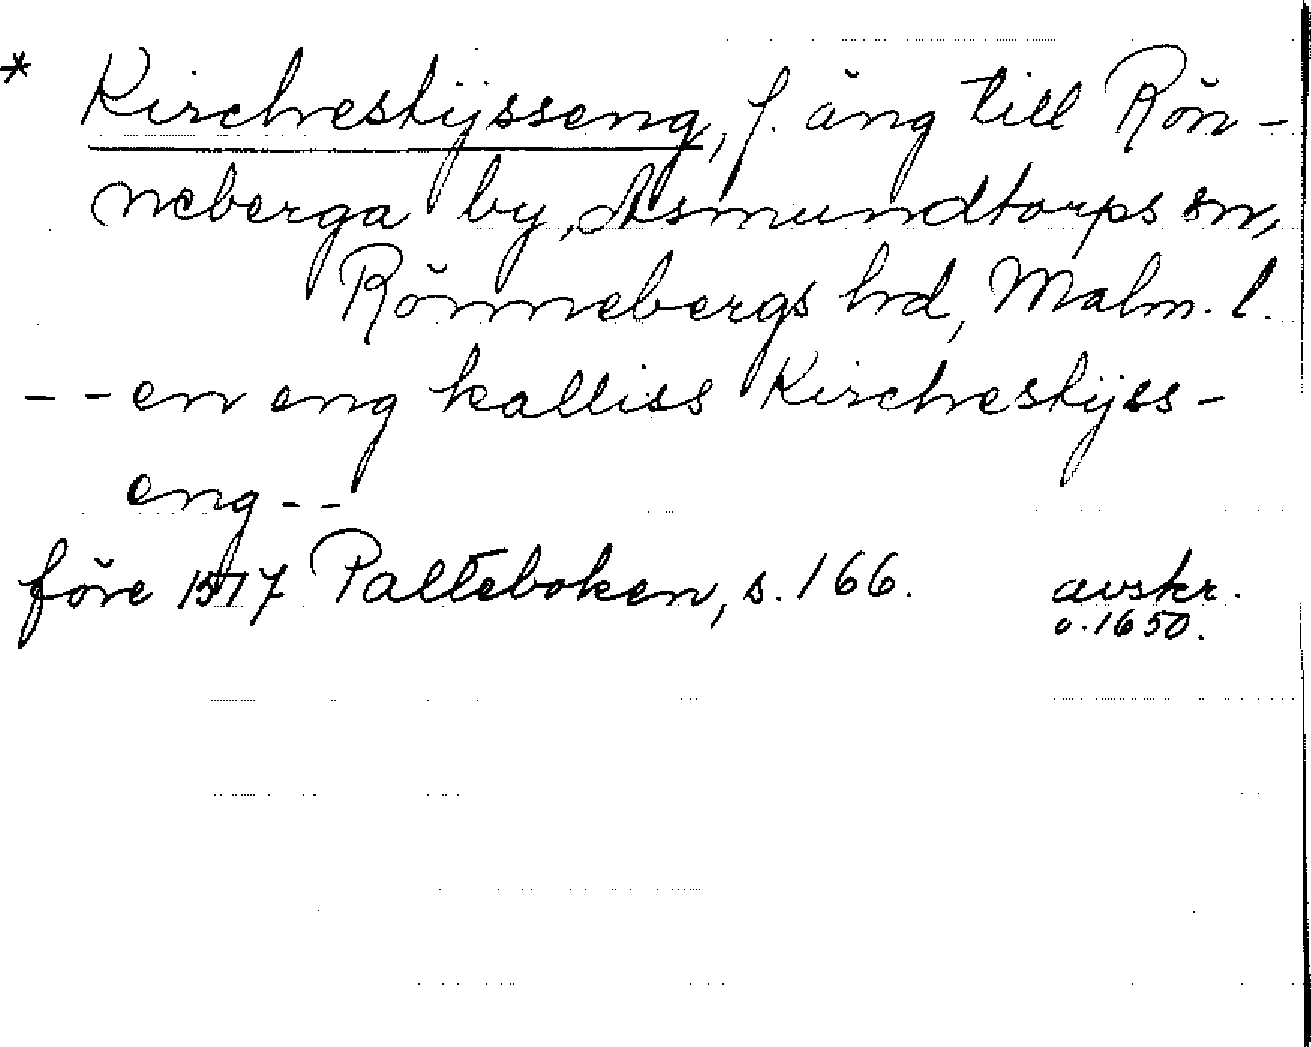 * Kircheskijsseng, f. äng till Rön-
neberga by, Asmundtorps sn,
Rönnebergs hd, Malm. l.
- - en eng kalliss Kircheskijss-
eng - -
före 1517 Palteboken, s. 166. avskr.
o. 1650.